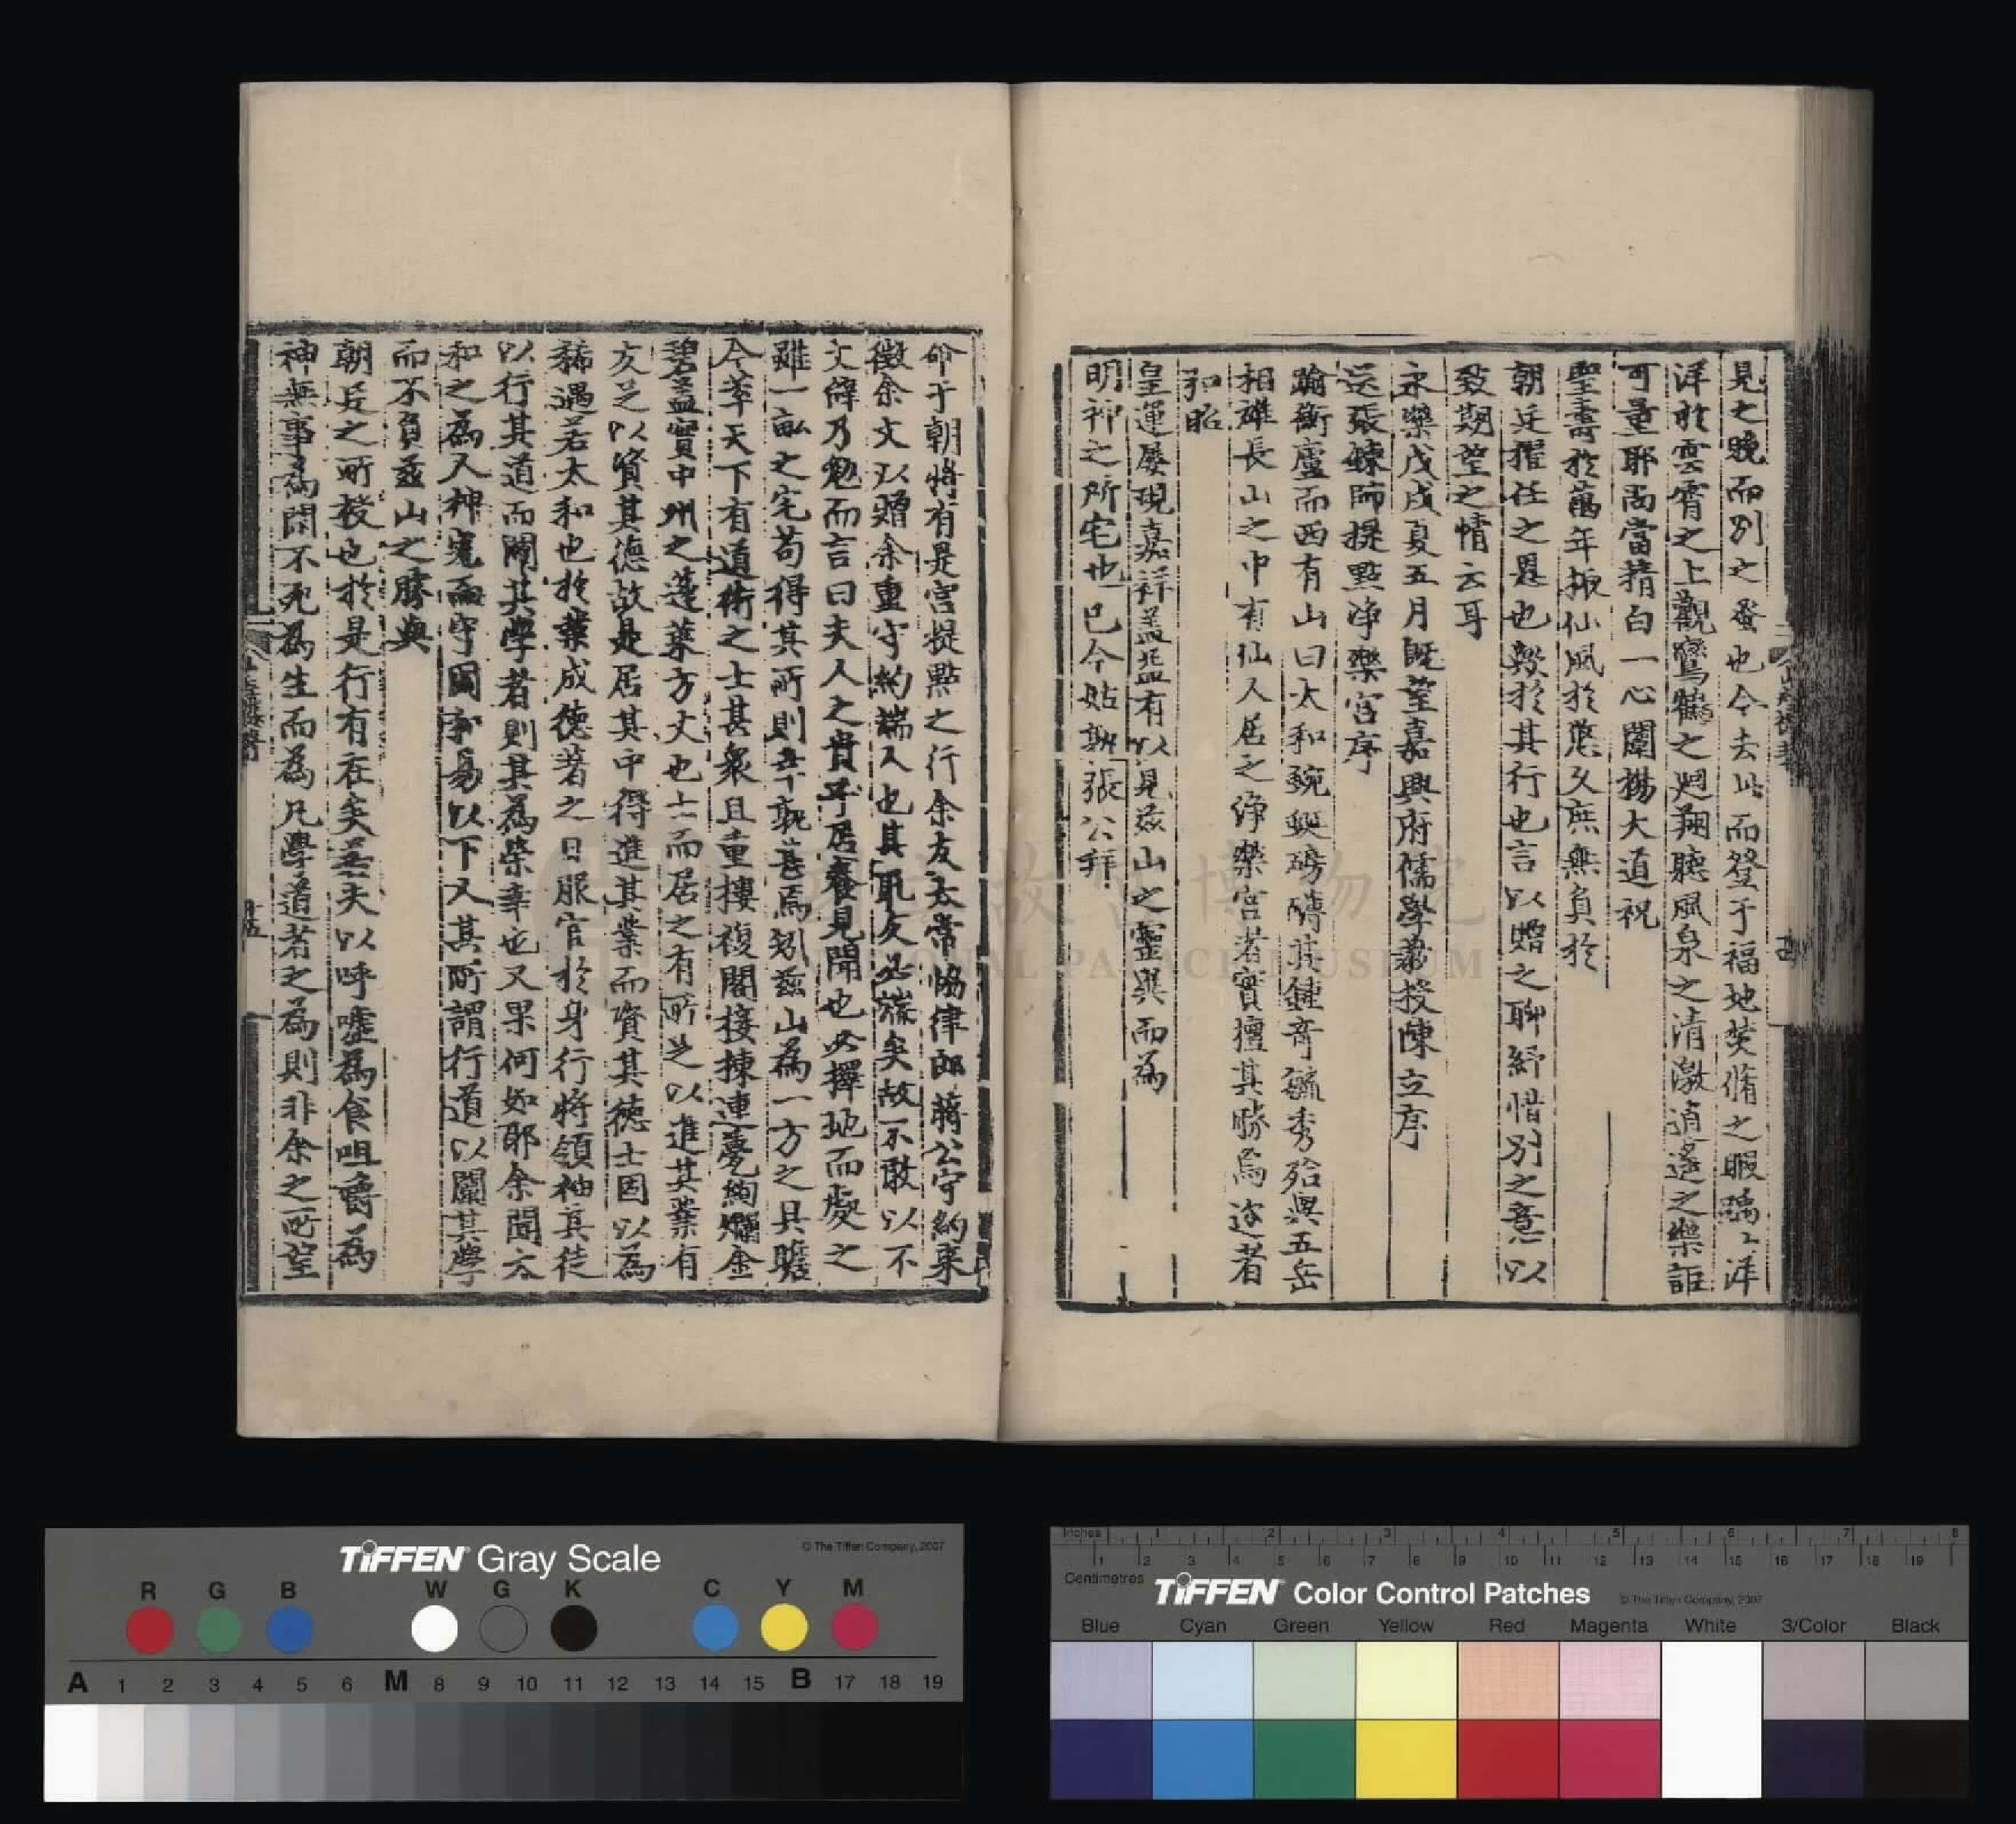 見之晚而別之蚤也今去此而登于福地焚脩之暇踽〻洋
洋於雲霄之上觀鸞鶴之翅翔聽風泉之清激逍遙之樂詎
可量耶尚當精白一心闡揚大道祝
聖壽於萬年振仙風於悠久庶無負於
朝廷擢任之恩也歟於其行也言以贈之聊紓惜別之意以
致期望之情云耳
永樂戊戌夏五月既望嘉興府儒學教授陳立序
送張鍊師提點淨樂宮序
踰衡廬而西有山曰太和蜿蜒磅礴其鍾奇毓秀殆與五岳
相雄長山之中有仙人居之淨樂宮者實擅其勝焉迩者
弘昭
皇運屢現嘉祥蓋葢有以見茲山之靈與而為
明神之所宅也已今姑熟張公拜
命于朝將有是宮提點之行余友太常協律郎蔣公守約來
徵余文以贈余重守約端人也其取友必端矣故不敢以不
文辭乃勉而言曰夫人之貴乎居養見聞也必擇地而處之
雖一畝之宅苟得其所則 焉矧茲山為一方之具瞻
今萃天下有道術之士甚衆且重樓複閣接棟連甍絢爛金
碧盖實中州之蓬萊方丈也士而居之有所 以進其業有
友 以資其德故是居其中得進其業而資其德士因以為
稀遇若太和也於業成德著之日服官於身行將領袖其徒
以行其道而闡其學者則其為榮幸也又果何如耶余聞太
和之為人神 而守固 易以下人其所謂行道以闡其學
而不負茲山之勝與
朝廷之所授也於是行有在矣若夫以呼噓為食咀嚼為
神無事為閒不死為生而為凡學道者之為則非余之所望